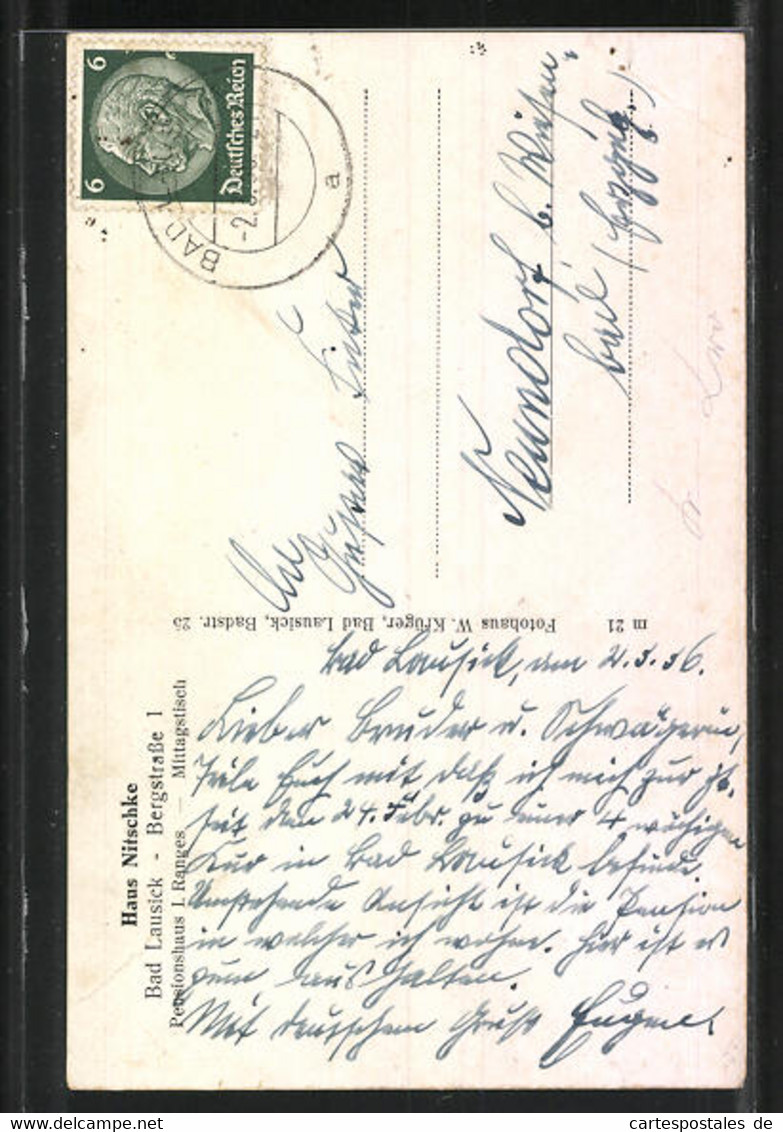 6
6
Deutsches Reich
BAD
a
Haus Nitschke
Bad Lausick - Bergstraße 1
Pensionshaus I. Ranges — Mittagstisch
Fotohaus W. Krüger, Bad Lausick, Badstr. 25
m 21
An
Neundorf b. Wiesen
bad (Erzgeb.)
Bad Lausick, am 2.3.36.
Lieber Bruder u. Schwägerin,
Teile Euch mit daß ich mich zur Zt.
seit dem 24. Febr. zu einer 4 wöchigen
Kur in Bad Lausick befinde.
Umstehende Ansicht ist die Pension
in welcher ich wohne. Hier ist es
zum aushalten.
Mit deutschem Gruß Eugen
www.delcampe.net
cartespostales de